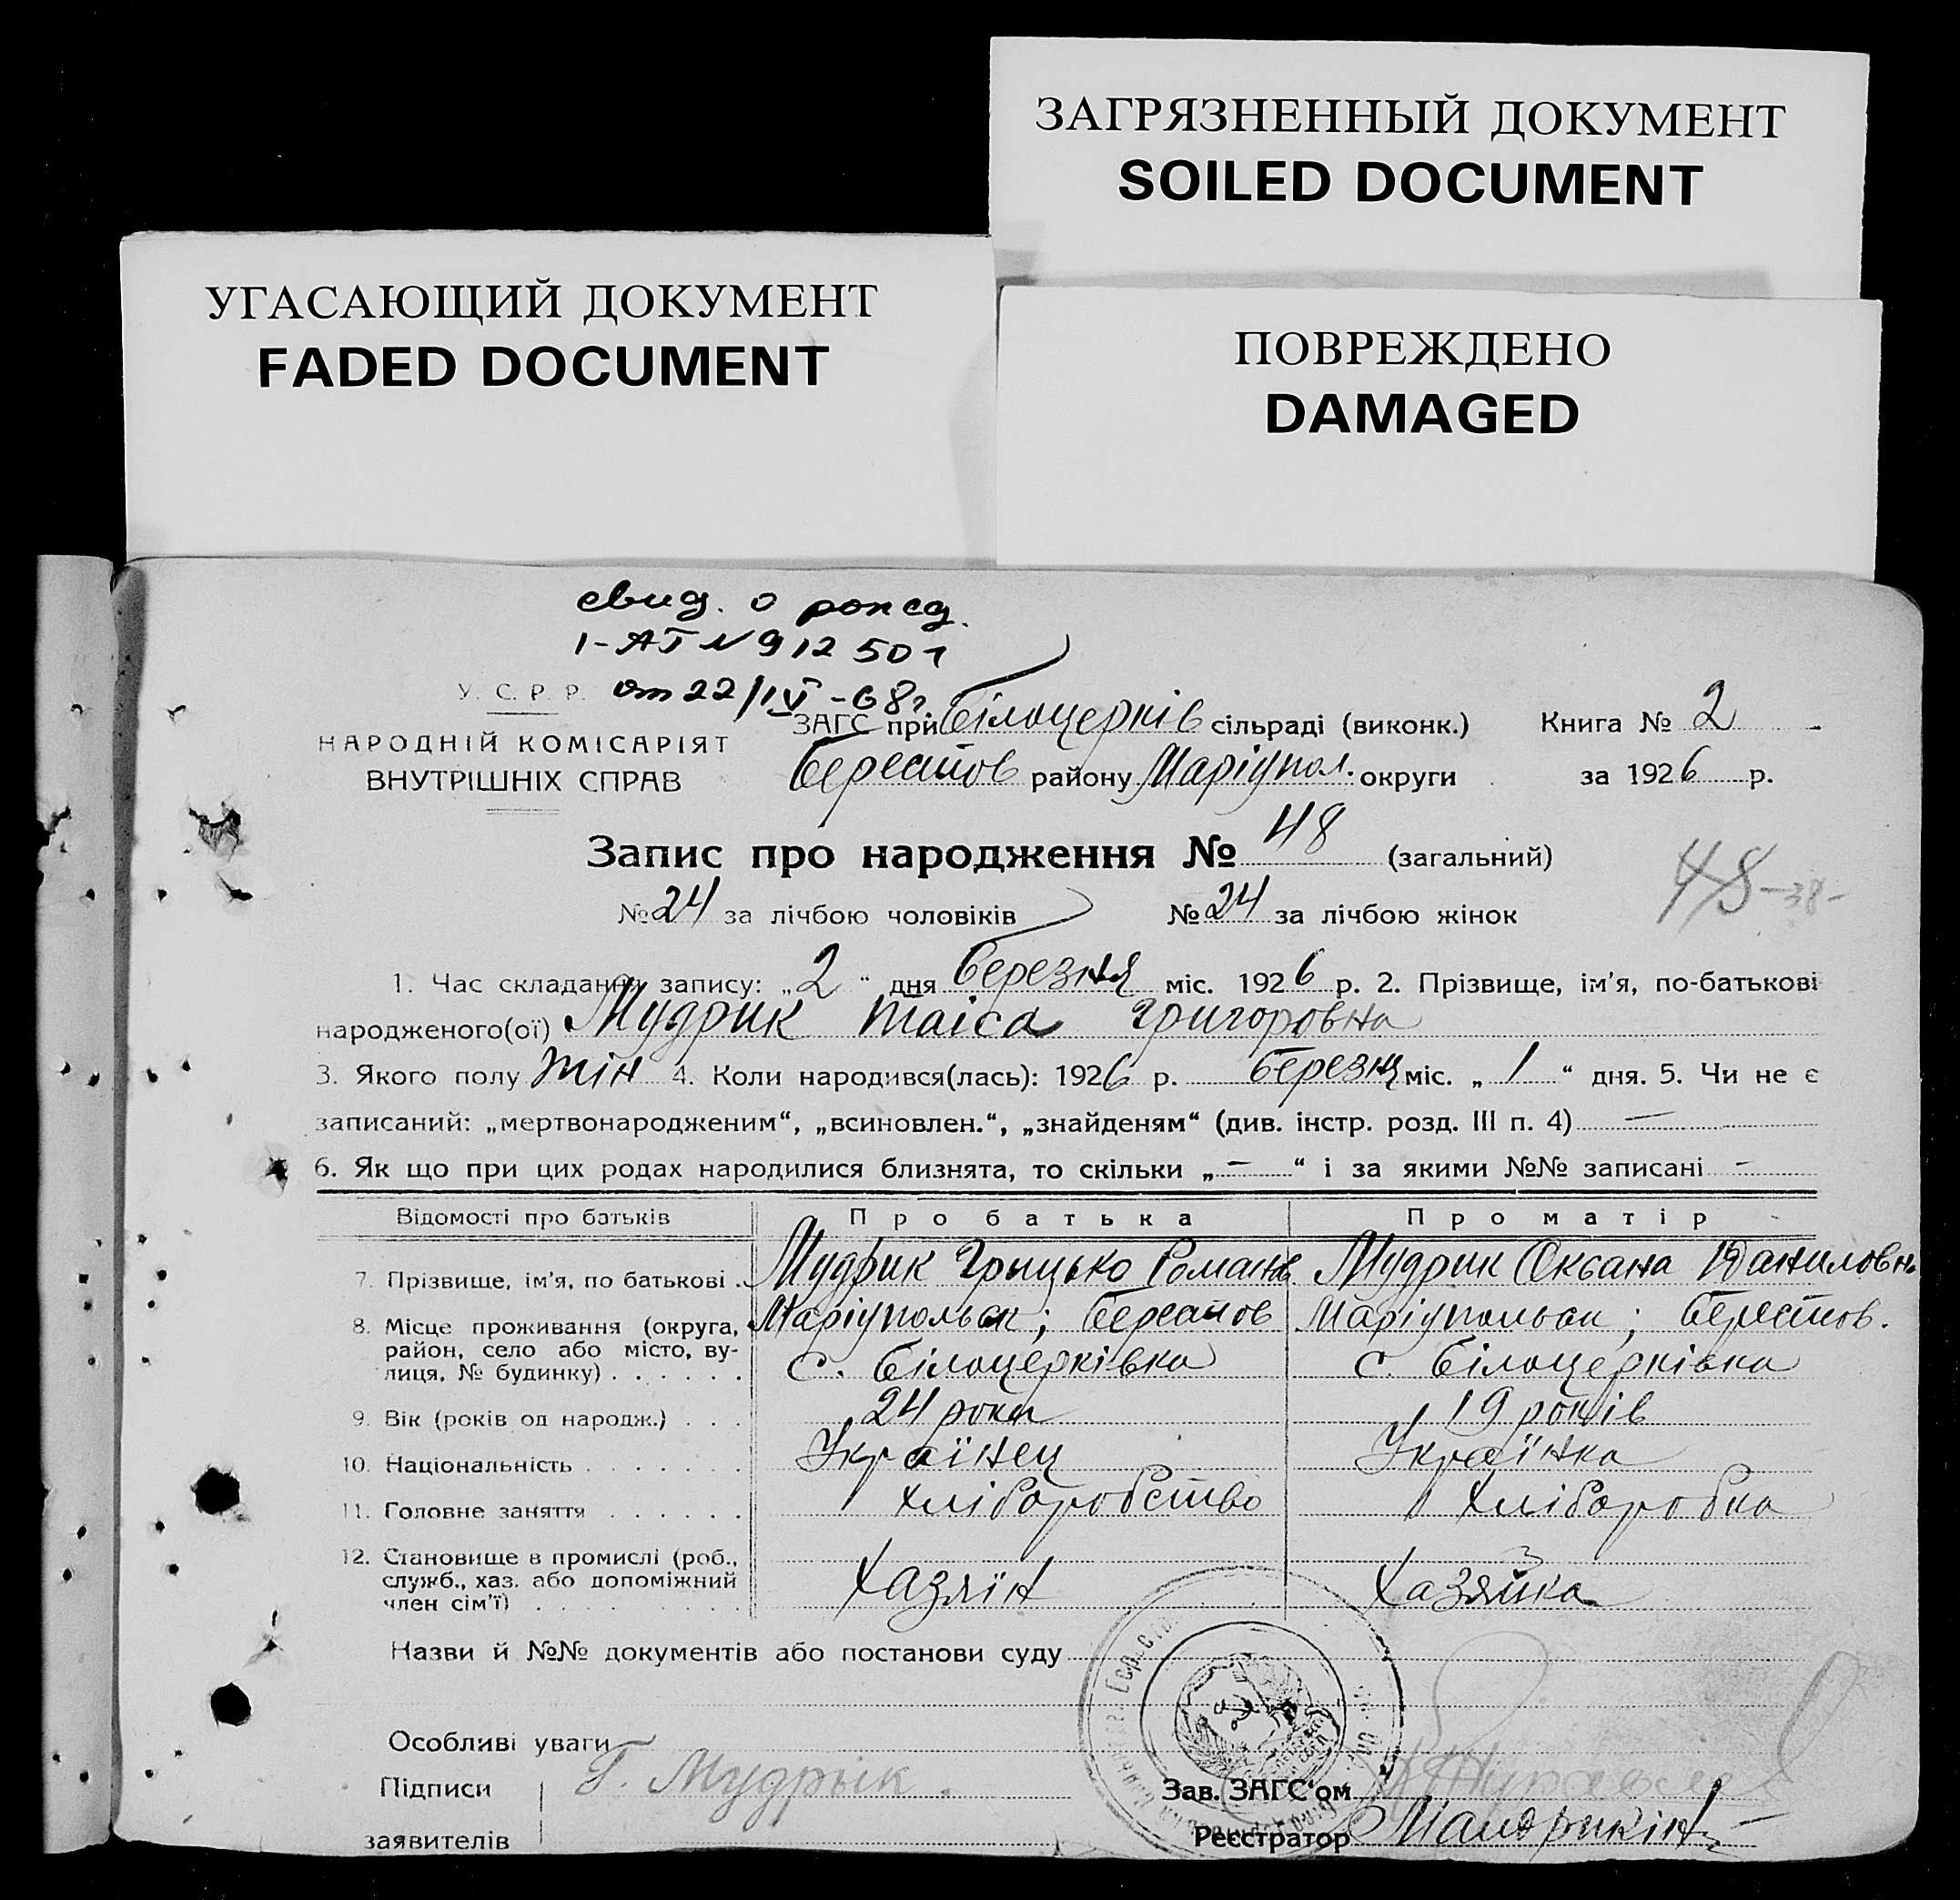 ЗАГРЯЗНЕННЫЙ ДОКУМЕНТ
SOILED DOCUMENT
УГАСАЮЩИЙ ДОКУМЕНТ
FADED DOCUMENT
ПОВРЕЖДЕНО
DAMAGED
свид. о рожд.
I-АГ № 912501
У. С. Р. Р. от 22/IV-68г.
НАРОДНІЙ КОМІСАРІЯТ
ВНУТРІШНІХ СПРАВ
ЗАГС при Білоцерків сільраді (виконк.) Книга № 2
Берестов району Маріупол. округи за 1926 р.
Запис про народження № 48 (загальний)
48 -38-
№ 24 за лічбою чоловіків № 24 за лічбою жінок
1. Час складання запису: „2“ дня березня міс. 1926 р. 2. Прізвище, ім'я, по-батькові
народженого(ої) Мудрик Таіса Григоровна
3. Якого полу жін 4. Коли народився(лась): 1926 р. березня міс. „1“ дня. 5. Чи не є
записаний: „мертвонародженим“, „всиновлен.“, „знайденям“ (див. інстр. розд. III п. 4) —
6. Як що при цих родах народилися близнята, то скільки „-“ і за якими №№ записані -
Відомості про батьків Про батька Про матір
7. Прізвище, ім'я, по батькові . Мудрик Грыцько Романов Мудрик Оксана Даниловн
8. Місце проживання (округа, Маріупольск; Берестов Маріупольск; Берестов.
район, село або місто, ву- с. Білоцерківка с. Білоцерківка
лиця, № будинку) . . . . . .
9. Вік (років од народж.) . . . 24 роки 19 років
10. Національність . . . . . . . Українец Українка
11. Головне заняття . . . . . . Хліборобство Хліборобка
12. Становище в промислі (роб.,
служб., хаз. або допоміжний Хазяїн Хазяйка
член сім'ї) . . . . . . . . .
Назви й №№ документів або постанови суду
Особливі уваги
Підписи Г. Мудрык. Зав. ЗАГС'ом
заявителів Реєстратор Мандрикін